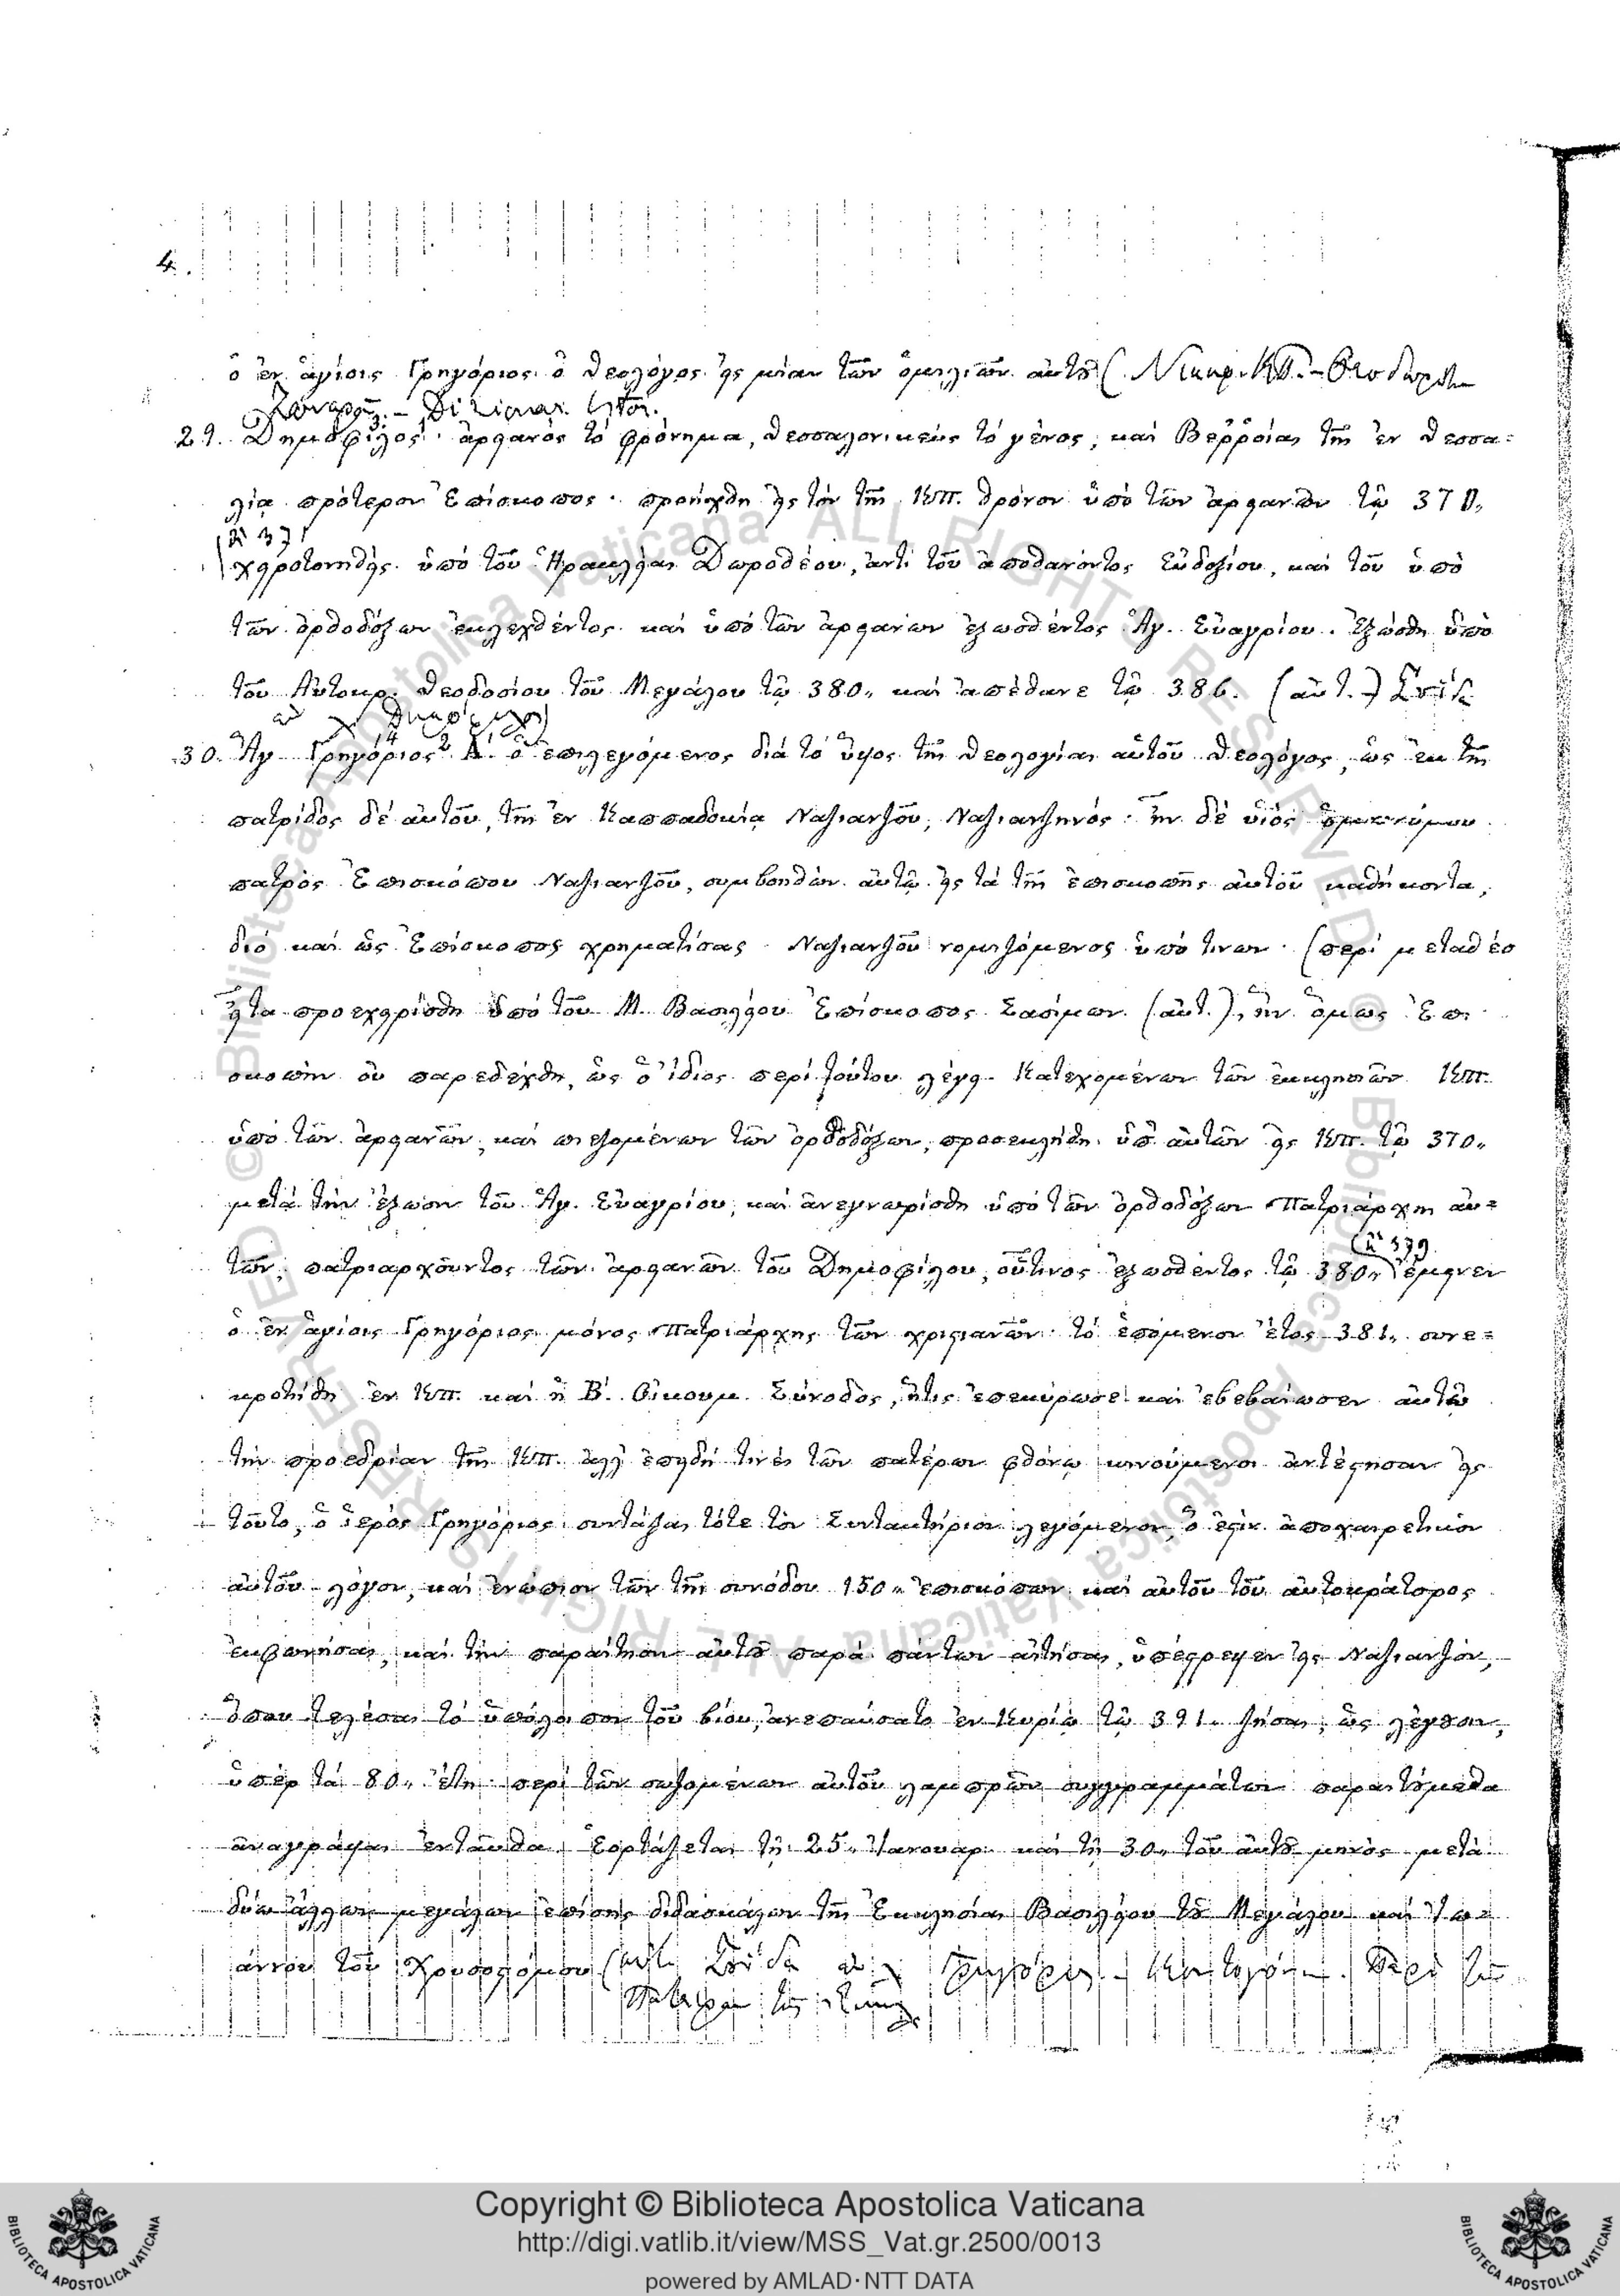 4.
ὁ ἐν ἁγίοις Γρηγόριος ὁ Θεολόγος εἰς μίαν τῶν ὁμιλιῶν αὐτοῦ (
29. Δημόφιλος· ἀρειανὸς τὸ φρόνημα, θεσσαλονικεὺς τὸ γένος, καὶ Βεῤῥοίας τῆς ἐν Θεσσα=
λίᾳ πρότερον Ἐπίσκοπος· προήχθη εἰς τὸν τῆς Κπ. θρόνον ὑπὸ τῶν ἀρειανῶν τῷ 370,
ἢ 371
χειροτονηθεὶς ὑπὸ τοῦ Ἡρακλείας Δωροθέου, ἀντὶ τοῦ ἀποθανόντος Εὐδοξίου, καὶ τοῦ ὑπὸ
τῶν ὀρθοδόξων ἐκλεχθέντος καὶ ὑπὸ τῶν ἀρειανῶν ἐξωσθέντος Ἁγ. Εὐαγρίου. Ἐξώσθη ὑπὸ
τοῦ Αὐτοκρ. Θεοδοσίου τοῦ Μεγάλου τῷ 380, καὶ ἀπέθανε τῷ 386. (αὐτ.)
30. Ἅγ. Γρηγόριος Α΄. ὁ ἐπιλεγόμενος διὰ τὸ ὕψος τῆς θεολογίας αὐτοῦ Θεολόγος, ὡς ἐκ τῆς
πατρίδος δὲ αὐτοῦ, τῆς ἐν Καππαδοκίᾳ Ναζιανζοῦ, Ναζιανζηνός· ἦν δὲ υἱὸς ὁμωνύμου
πατρὸς Ἐπισκόπου Ναζιανζοῦ, συμβοηθῶν αὐτῷ εἰς τὰ τῆς ἐπισκοπῆς αὐτοῦ καθήκοντα,
διὸ καὶ ὡς Ἐπίσκοπος χρηματίσας Ναζιανζοῦ νομιζόμενος ὑπό τινων· (περὶ μεταθέσ
εἶτα προεχειρίσθη ὑπὸ τοῦ Μ. Βασιλείου Ἐπίσκοπος Σασίμων (αὐτ.), ἣν ὅμως Ἐπι
σκοπὴν οὐ παρεδέχθη, ὡς ὁ ἴδιος περὶ τούτου λέγει. Κατεχομένων τῶν ἐκκλησιῶν Κπ.
ὑπὸ τῶν ἀρειανῶν, καὶ πιεζομένων τῶν ὀρθοδόξων, προσεκλήθη ὑπ' αὐτῶν εἰς Κπ. τῷ 370,
μετὰ τὴν ἔξωσιν τοῦ Ἁγ. Εὐαγρίου, καὶ ἀνεγνωρίσθη ὑπὸ τῶν ὀρθοδόξων Πατριάρχης αὐ=
ἢ 379
τῶν, πατριαρχοῦντος τῶν ἀρειανῶν τοῦ Δημοφίλου, οὗτινος ἐξωσθέντος τῷ 380, ἔμεινεν
ὁ ἐν ἁγίοις Γρηγόριος μόνος Πατριάρχης τῶν χριστιανῶν· τὸ ἑπόμενον ἔτος 381, συνε=
κροτήθη ἐν Κπ. καὶ ἡ Β΄. Οἰκουμ. Σύνοδος, ἥτις ἐπεκύρωσε καὶ ἐβεβαίωσεν αὐτῷ
τὴν προεδρίαν τῆς Κπ. ἀλλ' ἐπειδή τινες τῶν πατέρων φθόνῳ κινούμενοι ἀντέστησαν εἰς
τοῦτο, ὁ ἱερὸς Γρηγόριος συντάξας τότε τὸν Συντακτήριον λεγόμενον, ὅ ἐστιν ἀποχαιρετικὸν
αὐτοῦ λόγον, καὶ ἐνώπιον τῶν τῆς συνόδου 150, ἐπισκόπων καὶ αὐτοῦ τοῦ αὐτοκράτορος
ἐκφωνήσας, καὶ τὴν παραίτησιν αὐτοῦ παρὰ πάντων αἰτήσας, ὑπέστρεψεν εἰς Ναζιανζόν,
ὅπου τελέσας τὸ ὑπόλοιπον τοῦ βίου, ἀνεπαύσατο ἐν Κυρίῳ τῷ 391, ζήσας, ὡς λέγεται,
ὑπὲρ τὰ 80, ἔτη· περὶ τῶν σωζομένων αὐτοῦ λαμπρῶν συγγραμμάτων παραιτούμεθα
ἀναγράψαι ἐνταῦθα. Ἑορτάζεται τῇ 25, Ἰανουαρ. καὶ τῇ 30, τοῦ αὐτοῦ μηνὸς μετὰ
δύω ἄλλων μεγάλων ἐπίσης διδασκάλων τῆς Ἐκκλησίας Βασιλείου τοῦ Μεγάλου καὶ Ἰω=
άννου τοῦ Χρυσοστόμου (αὐτ.
© Biblioteca Apostolica Vaticana ALL RIGHTS RESERVED © Biblioteca Apostolica Vaticana ALL RIGHTS RESERVED
Copyright © Biblioteca Apostolica Vaticana
http://digi.vatlib.it/view/MSS_Vat.gr.2500/0013
powered by AMLAD·NTT DATA
BIBLIOTECA APOSTOLICA VATICANA
BIBLIOTECA APOSTOLICA VATICANA